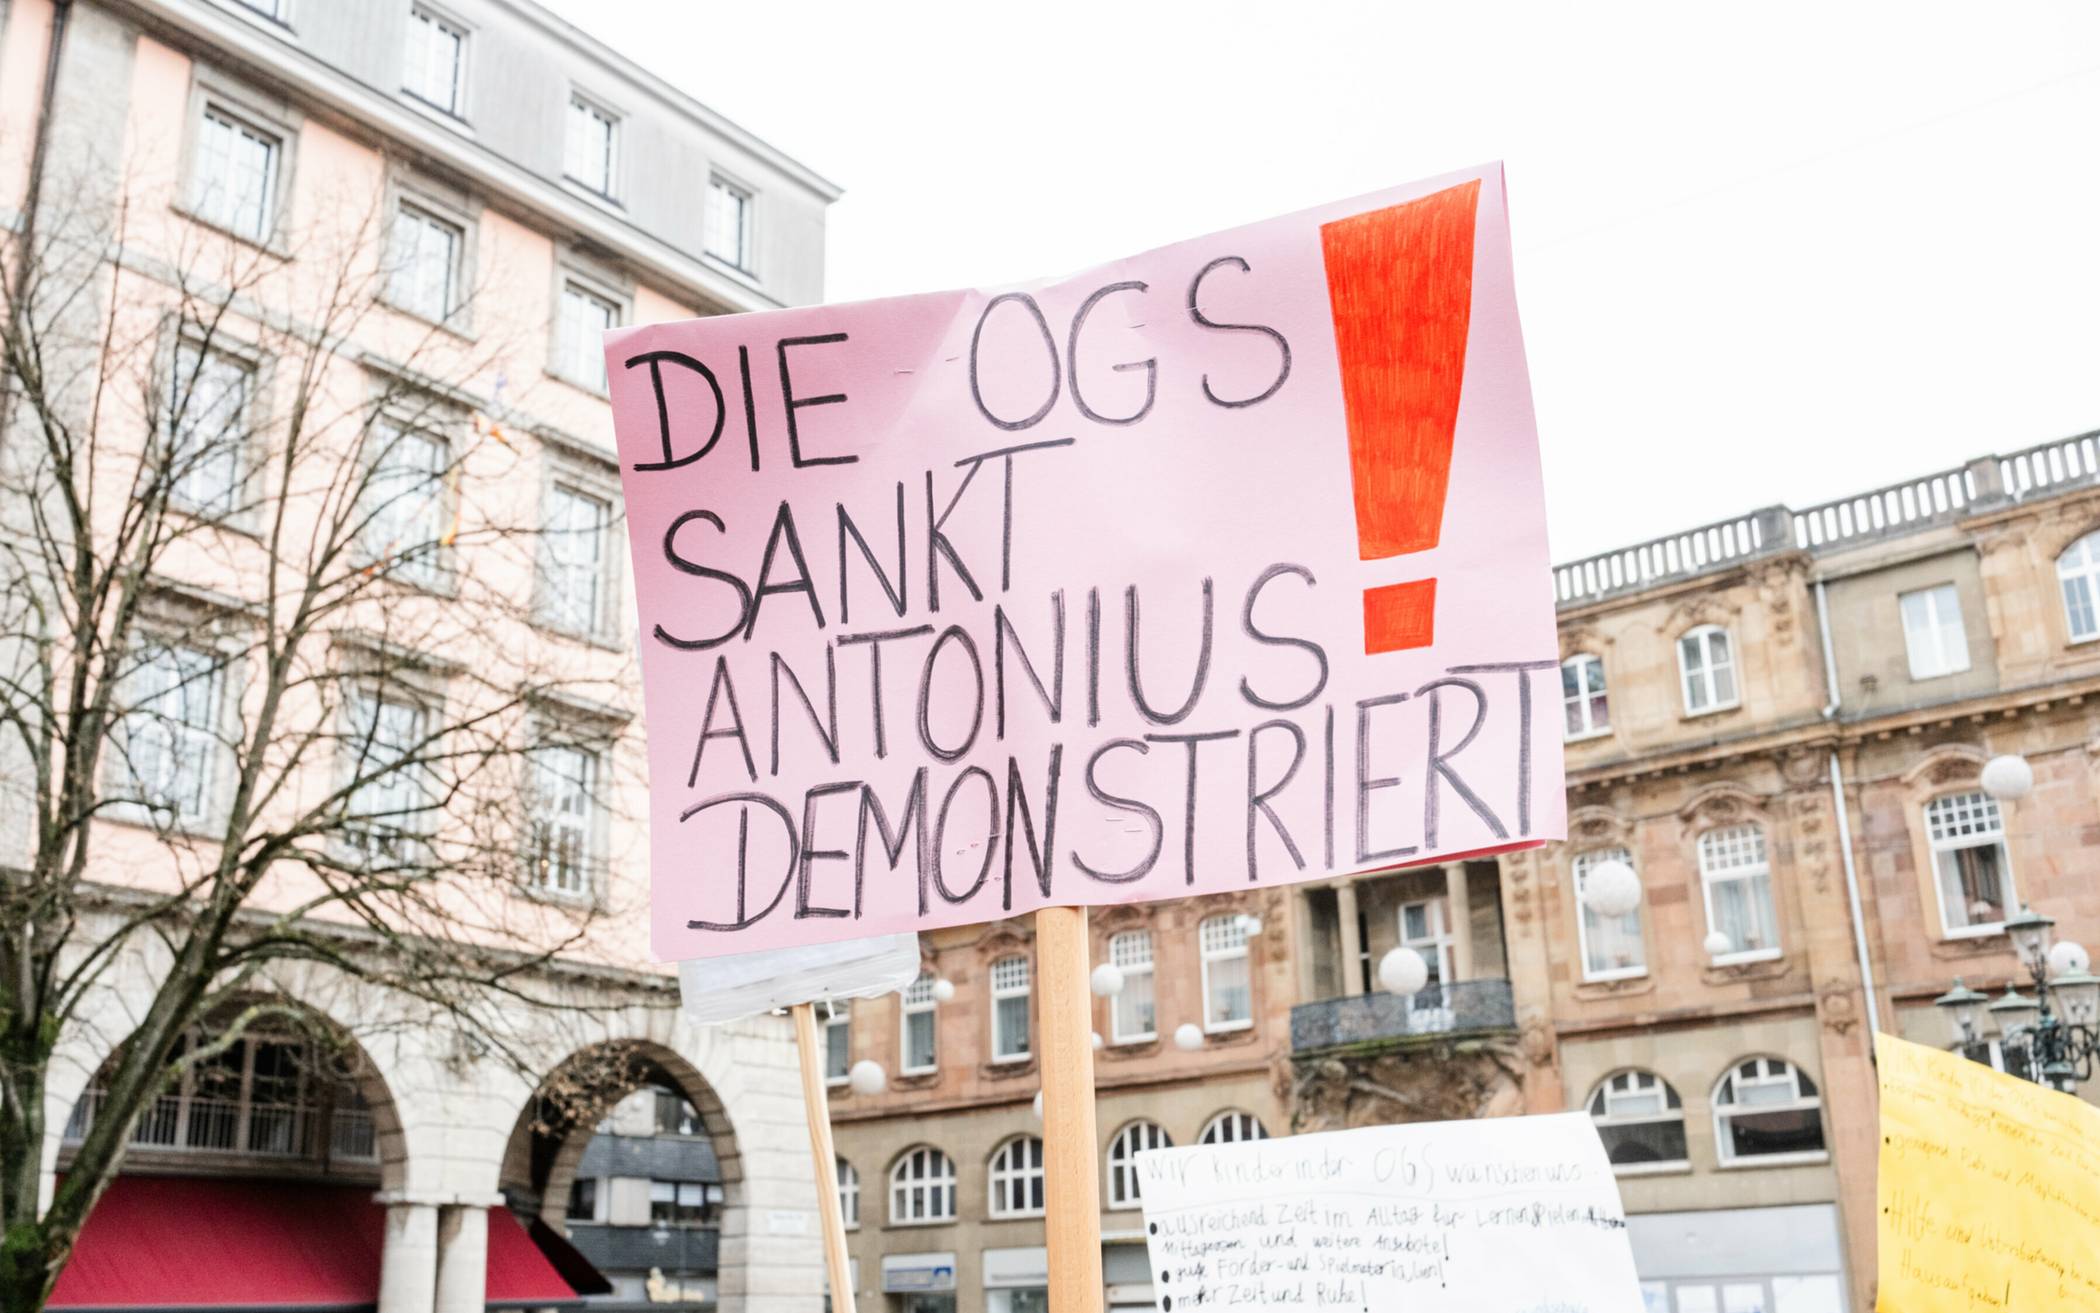 DIE OGS
SANKT
ANTONIUS
DEMONSTRIERT!
Wir Kinder in der OGS wünschen uns...
• ausreichend Zeit im Alltag für Lernen, Spielen,
Mittagessen und weitere Angebote!
• gute Förder- und Spielmaterialien!
• mehr Zeit und Ruhe!
• genügend Platz und
• Hilfe und
Hausaufgaben!